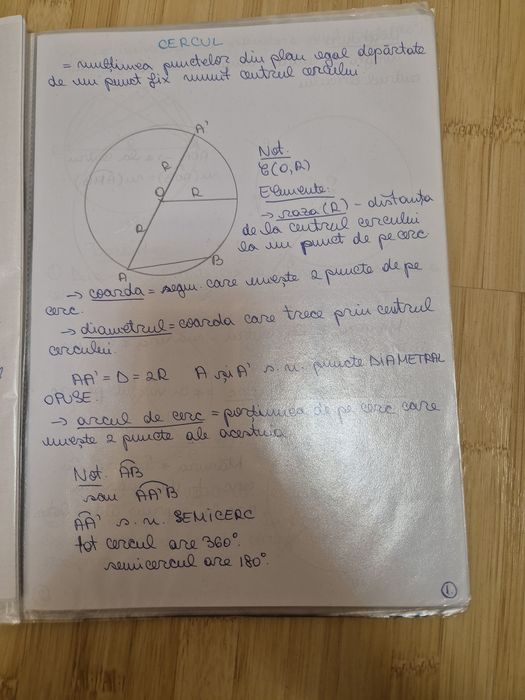 CERCUL
= mulțimea punctelor din plan egal depărtate
de un punct fix numit centrul cercului
A'
R
O
R
R
A
B
Not.
C(O,R)
Elemente:
→ raza (R) - distanța
de la centrul cercului
la un punct de pe cerc
→ coarda = segm. care unește 2 puncte de pe
cerc.
→ diametrul = coarda care trece prin centrul
cercului.
AA' = D = 2R A și A' s.n. puncte DIAMETRAL
OPUSE.
→ arcul de cerc = porțiunea de pe cerc care
unește 2 puncte ale acestuia
Not. AB
sau AA'B
AA' s.n. SEMICERC
tot cercul are 360°.
semicercul are 180°.
1.